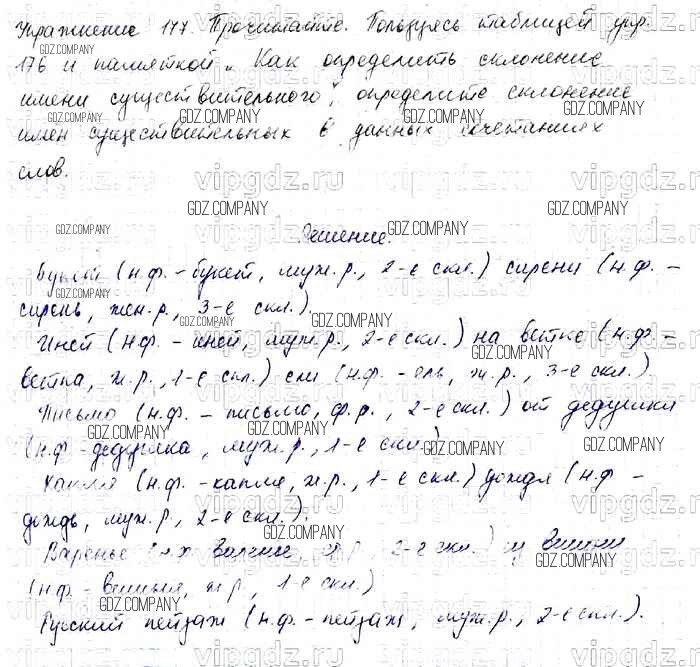 Упражнение 177. Прочитайте. Пользуясь таблицей упр.
176 и памяткой „Как определить склонение
имени существительного", определите склонение
имён существительных в данных сочетаниях
слов.
Решение.
Букет (н.ф. - букет, муж.р., 2-е скл.) сирени (н.ф. -
сирень, жен.р., 3-е скл.).
Иней (н.ф. - иней, муж.р., 2-е скл.) на ветке (н.ф. -
ветка, ж.р., 1-е скл.) ели (н.ф. - ель, ж.р., 3-е скл.).
Письмо (н.ф. - письмо, ф.р., 2-е скл.) от дедушки
(н.ф - дедушка, муж.р., 1-е скл.)
Капля (н.ф. - капля, ж.р., 1-е скл.) дождя (н.ф -
дождь, муж.р., 2-е скл.).
Варенье 2-е скл.) из вишни
(н.ф - вишня, ж.р., 1-е скл.)
Русский пейзаж (н.ф. - пейзаж, муж.р., 2-е скл.).
GDZ.COMPANY
vipgdz.ru